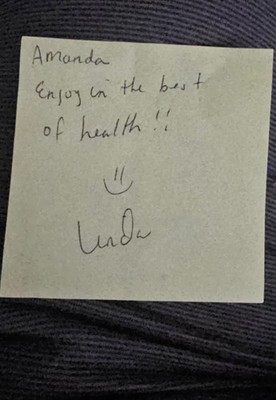 Amanda
Enjoy in the best
of health!!
Linda